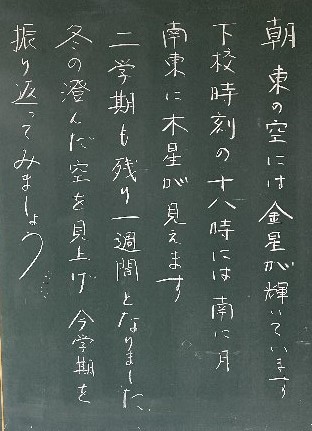 朝 東の空には金星が輝いています
下校時刻の十八時には南に月
南東に木星が見えます
二学期も残り一週間となりました
冬の澄んだ空を見上げ 今学期を
振り返ってみましょう